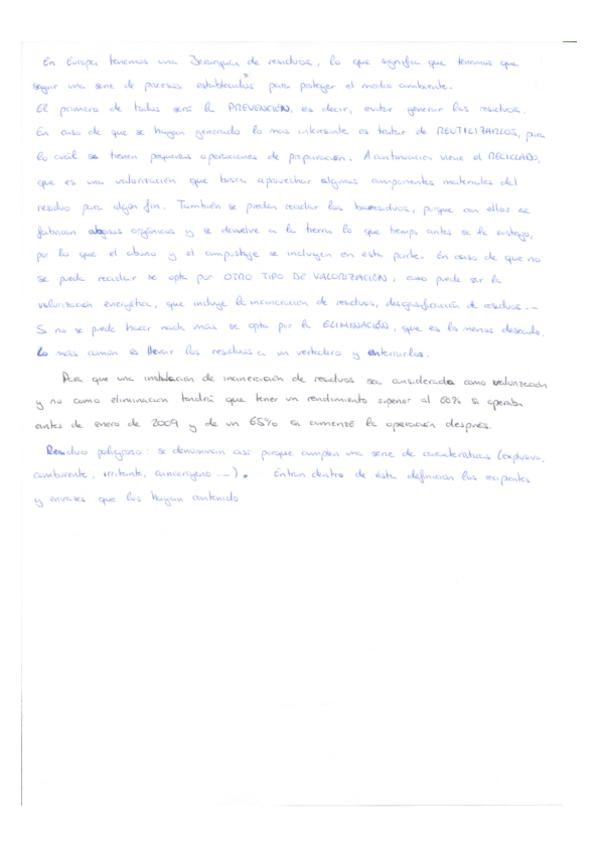 En Europa tenemos una Jerarquía de residuos, lo que significa que tenemos que
seguir una serie de procesos establecidos para proteger el medio ambiente.
El primero de todos será la PREVENCIÓN, es decir, evitar generar los residuos.
En caso de que se hayan generado lo más interesante es tratar de REUTILIZARLOS, para
lo cuál se tienen pequeñas operaciones de preparación. A continuación viene el RECICLADO,
que es una valorización que busca aprovechar algunos componentes materiales del
residuo para algún fin. También se pueden reciclar los bioresiduos, porque con ellos se
fabrican abonos orgánicos y se devuelve a la tierra lo que tiempo antes se le sustrajo,
por lo que el abono y el compostaje se incluyen en esta parte. En caso de que no
se pueda reciclar se opta por OTRO TIPO DE VALORIZACIÓN, como puede ser la
valorización energética, que incluye la incineración de residuos, desgasificación de residuos...
Si no se puede hacer nada más se opta por la ELIMINACIÓN, que es lo menos deseado.
Lo más común es llevar los residuos a un vertedero y enterrarlos.
Para que una instalación de incineración de residuos sea considerada como valorización
y no como eliminación tendrá que tener un rendimiento superior al 60% si operaba
antes de enero de 2009 y de un 65% si comenzó la operación después.
Residuo peligroso: se denominan así porque cumplen una serie de características (explosivo,
comburente, irritante, cancerígeno ...). Entran dentro de esta definición los recipientes
y envases que los hayan contenido